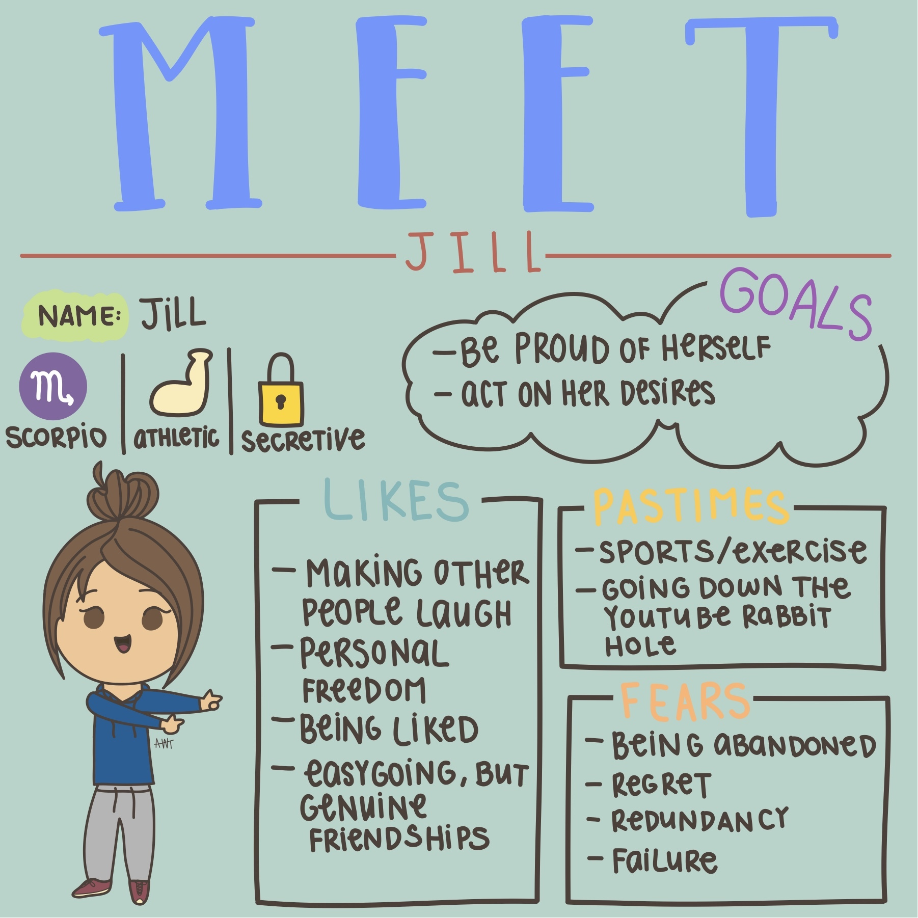 MEET
JILL
NAME: JiLL
SCORPiO
aTHLeTiC
SeCReTiVe
GOALS
- Be PROUD OF HeRSeLF
- aCT ON HeR DeSiReS
LIKES
- MaKiNG OTHeR
PeOPLe LaUGH
- PeRSONaL
FReeDOM
- BeiNG LiKeD
- eaSYGOiNG, BUT
GeNUiNe
FRieNDSHiPS
PASTIMES
- SPORTS/exeRCiSe
- GOiNG DOWN THe
YOUTUBe RaBBiT
HOLe
FEARS
- BeiNG aBaNDONeD
- ReGReT
- ReDUNDaNCY
- FaiLURe
AWT